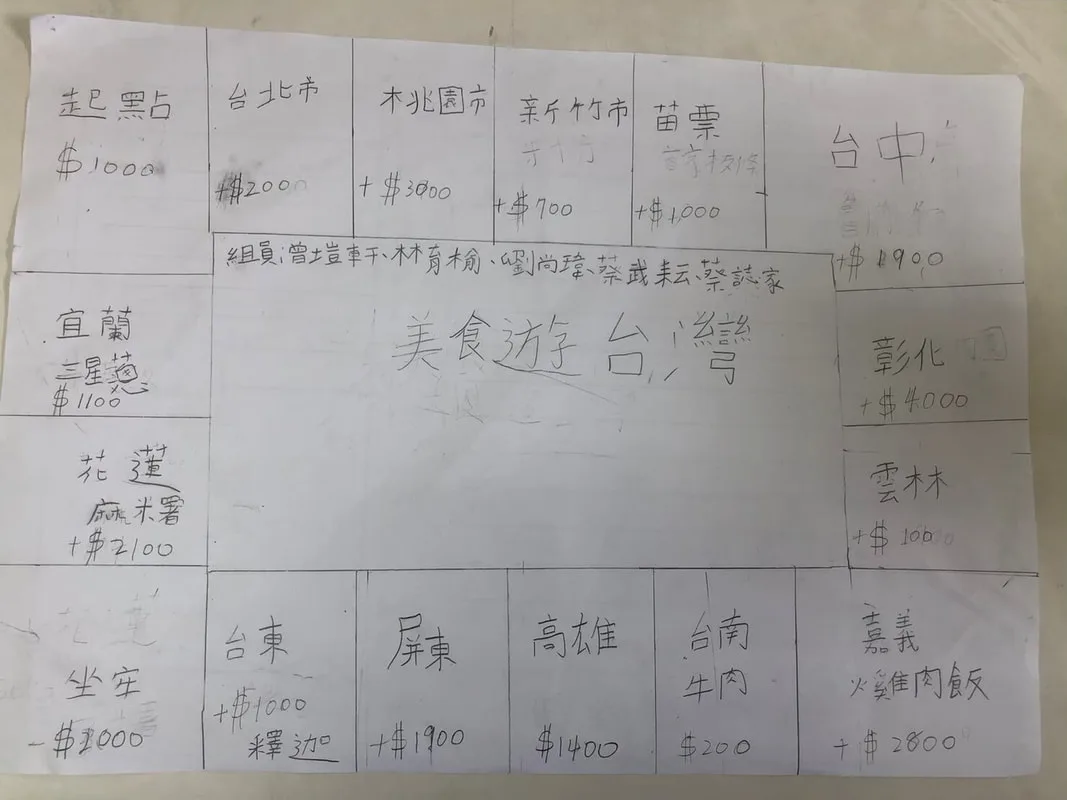 起點
$1000
台北市
+$2000
桃園市
+$3000
新竹市
+$700
苗票
+$1,000
台中
+$1900
組員:曾塏軒、林育榆、劉尚瑋、蔡武耘、蔡誌家
美食遊台灣
宜蘭
三星蔥
$1100
彰化
+$4000
花蓮
麻米署
+$2100
雲林
+$1000
坐牢
-$2000
台東
+$1000
釋迦
屏東
+$1900
高雄
$1400
台南
牛肉
$200
嘉義
火雞肉飯
+$2800